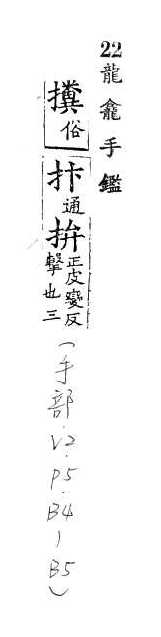 22龍龕手鑑
攩俗拤通拚正皮變反擊也三(手部.V2.P5.B4-B5)